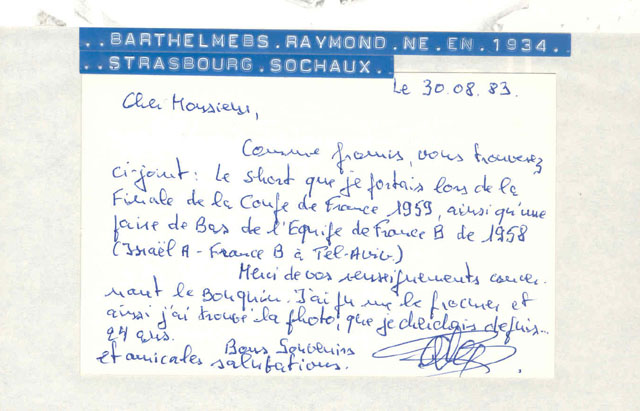 ..BARTHELMEBS.RAYMOND.NE.EN.1934.
..STRASBOURG.SOCHAUX.
Le 30.08.83.
Cher Monsieur,
Comme promis, vous trouverez
ci-joint: Le short que je portais lors de la
Finale de la Coupe de France 1959, ainsi qu'une
paire de Bas de l'Equipe de France B de 1958
(Israël A - France B à Tel-Aviv.)
Merci de vos renseignements concer-
nant le Bouquin. J'ai pu me le procurer et
ainsi j'ai trouvé la photo, que je cherchais depuis...
24 ans.
Bons Souvenirs
et amicales salutations.